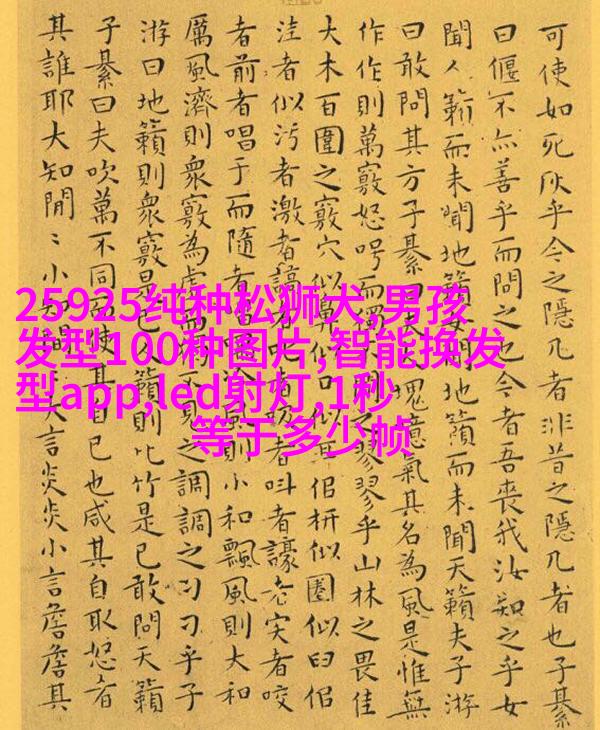 可使如死灰乎今之隱几者非昔之隱几者也子綦
曰偃不亦善乎而問之也今者吾喪我汝知之乎女
聞人籟而未聞地籟女聞地籟而未聞天籟夫子游
曰敢問其方子綦曰夫大塊噫氣其名為風是惟無
作作則萬竅怒呺而獨不聞之翏翏乎山林之畏佳
大木百圍之竅穴似鼻似口似耳佀枅似圈似臼佀
洼者似污者激者謞者叱者吸者叫者譹者宎者咬
者前者唱于而隨者唱喁泠風則小和飄風則大和
厲風濟則衆竅為虛而獨不見之調調之刁刁乎子
游曰地籟則衆竅是已人籟則比竹是已敢問天籟
子綦曰夫吹萬不同而使其自已也咸其自取怒者
其誰耶大知閒〻小知閒〻大言炎炎小言詹詹其
25925纯种松狮犬,男孩
发型100种图片,智能换发
型app,led射灯,1秒
等于多少帧